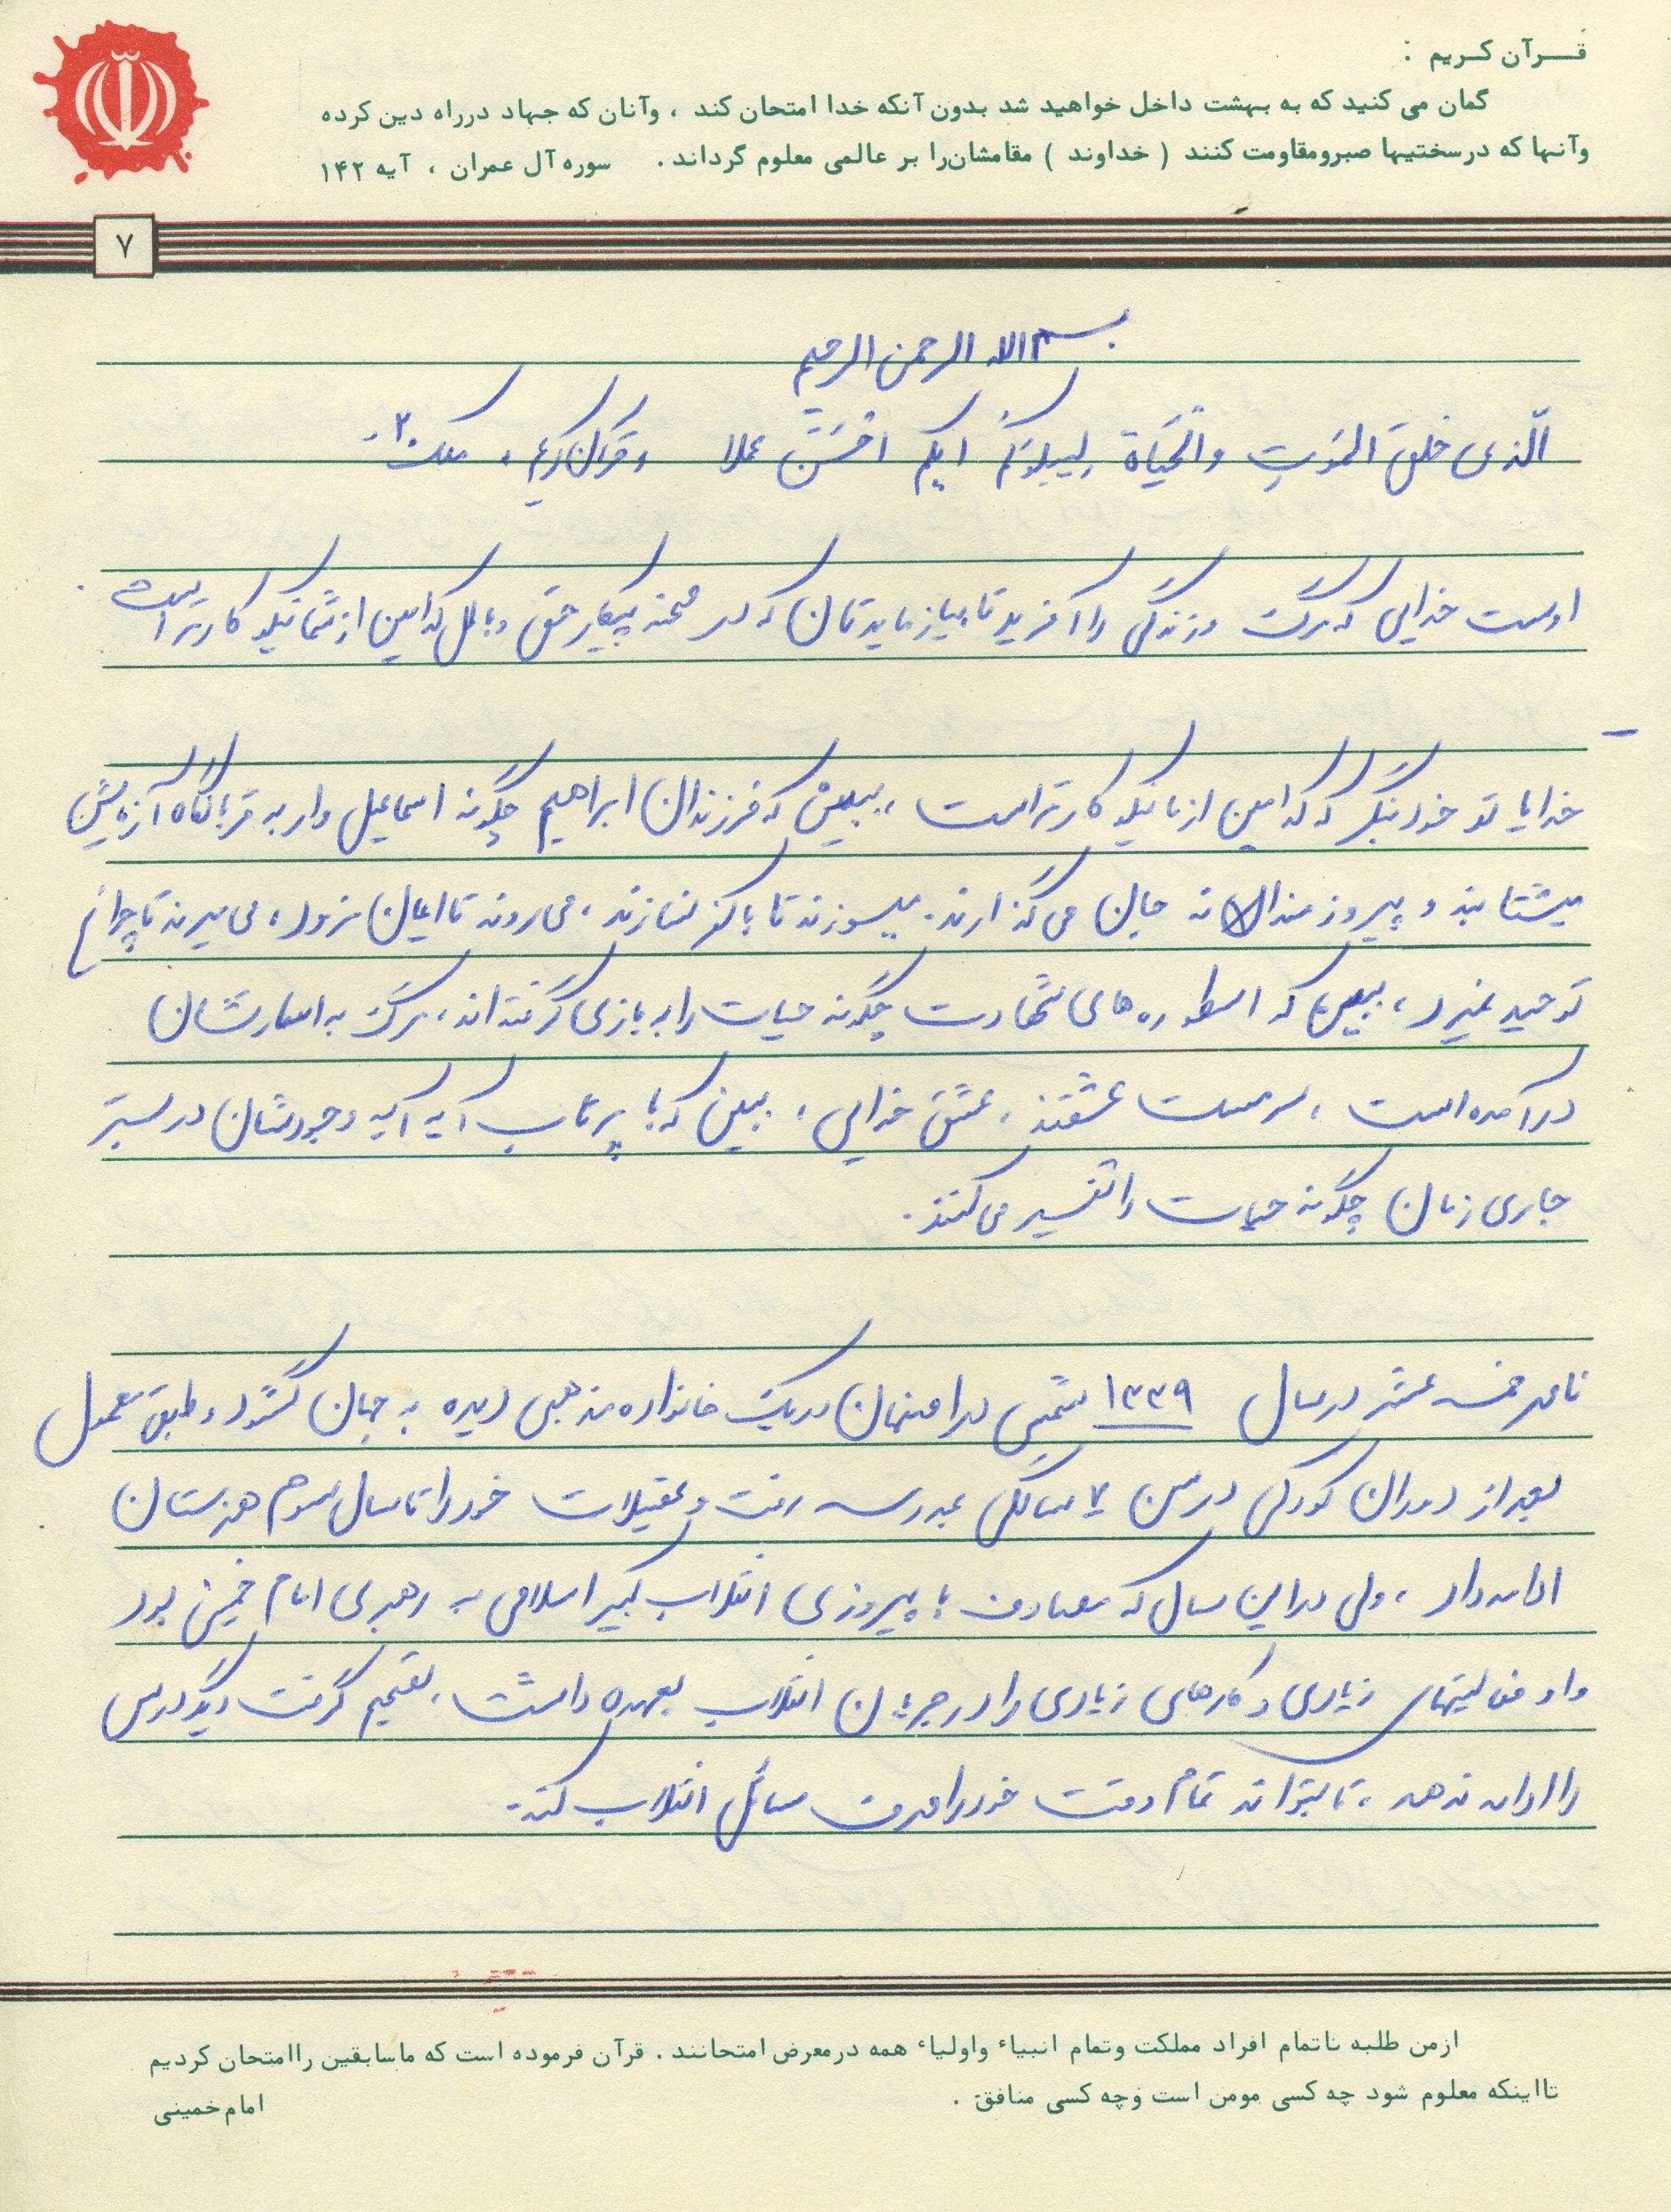 قرآن کریم :
گمان می کنید که به بهشت داخل خواهید شد بدون آنکه خدا امتحان کند ، وآنان که جهاد درراه دین کرده
وآنها که درسختیها صبرومقاومت کنند ( خداوند ) مقامشان‌را بر عالمی معلوم گرداند . سوره آل عمران ، آیه ۱۴۲
۷
بسم الله الرحمن الرحیم
الّذی خلقَ المَوتِ والحَیَاة لِیبلوَکُم ایکم احْسَنَ عملا و قرآن کریم ، ملک ۲۰
اوست خدایی که مرگ و زندگی را آفرید تا بیازمایدتان که در صحنه پیکار حق و باطل کدامین از شما نیکو کارتر است .
خدایا تو خود بنگر که کدامین از ما نیکو کارتر است ، ببین که فرزندان ابراهیم چگونه اسماعیل وار به قربانگاه آزمایش
میشتابند و پیروزمندانه جان می گذارند . میسوزند تا با کفر نسازند ، می روند تا ایمان نرود ، می میرند تا چراغ
توحید نمیرد ، ببین که اسطوره های شهادت چگونه حیات را به بازی گرفته اند ، مرگ به اسارتشان
درآمده است ، سرمست عشقند ، عشق خدایی ، ببین که با پرتاب آیه آیه وجودشان در بستر
جاری زمان چگونه حیات را تفسیر می کنند .
ناصر خمسه عشر در سال ۱۳۳۹ شمسی در اصفهان در یک خانواده مذهبی دیده به جهان گشود و طبق معمول
بعد از دوران کودکی در سن ۷ سالگی بمدرسه رفت و تحصیلات خود را تا سال سوم هنرستان
ادامه داد ، ولی در این سال که مصادف با پیروزی انقلاب کبیر اسلامی به رهبری امام خمینی بود
و او فعالیتهای زیادی و کارهای زیادی را در جریان انقلاب بعهده داشت ، تصمیم گرفت دیگر درس
را ادامه ندهد ، تا بتواند تمام وقت خود را صرف مسائل انقلاب کند .
ازمن طلبه تاتمام افراد مملکت وتمام انبیاء واولیاء همه درمعرض امتحانند . قرآن فرموده است که ماسابقین راامتحان کردیم
تااینکه معلوم شود چه کسی مومن است وچه کسی منافق . امام خمینی